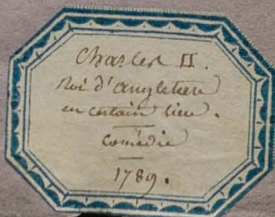 Charles II.
Roi d'angleterre
en certain lieu.
Comédie
1789.